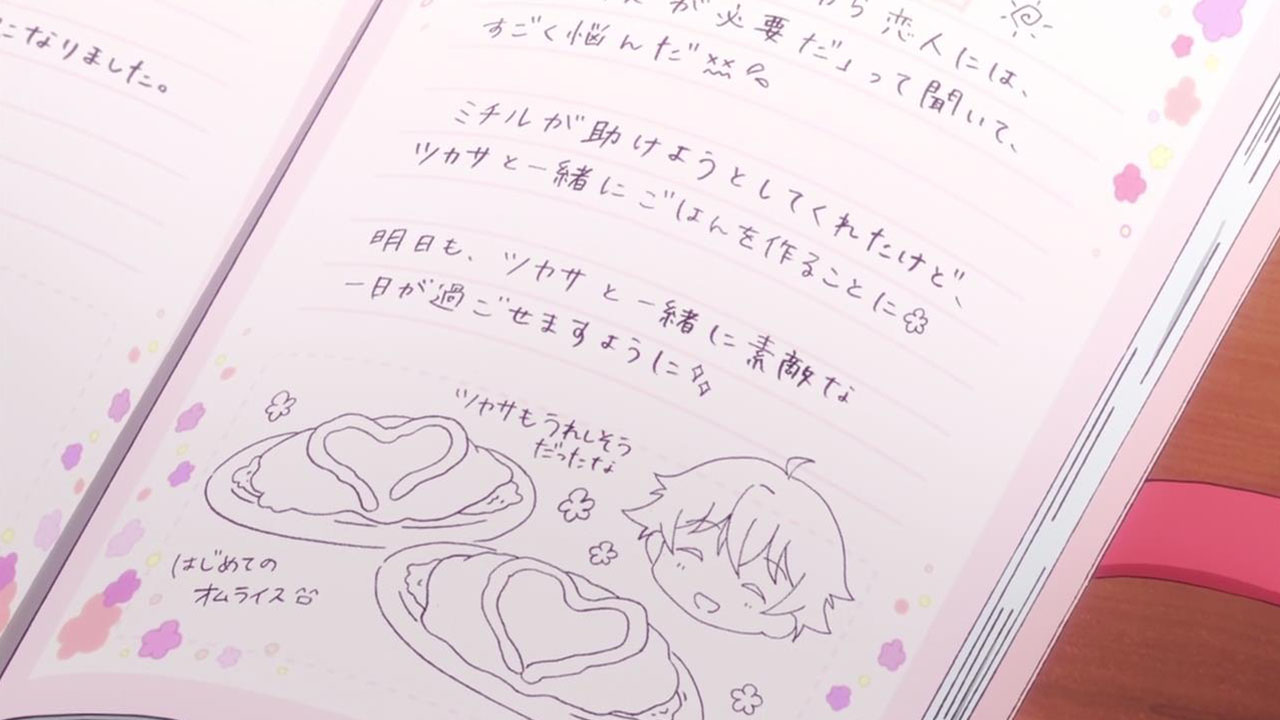 になりました。
ら恋人には、
が必要だ」って聞いて、
すごく悩んだ
ミチルが助けようとしてくれたけど、
ツカサと一緒にごはんを作ることに
明日も、ツカサと一緒に素敵な
一日が過ごせますように
ツカサもうれしそう
だったな
はじめての
オムライス